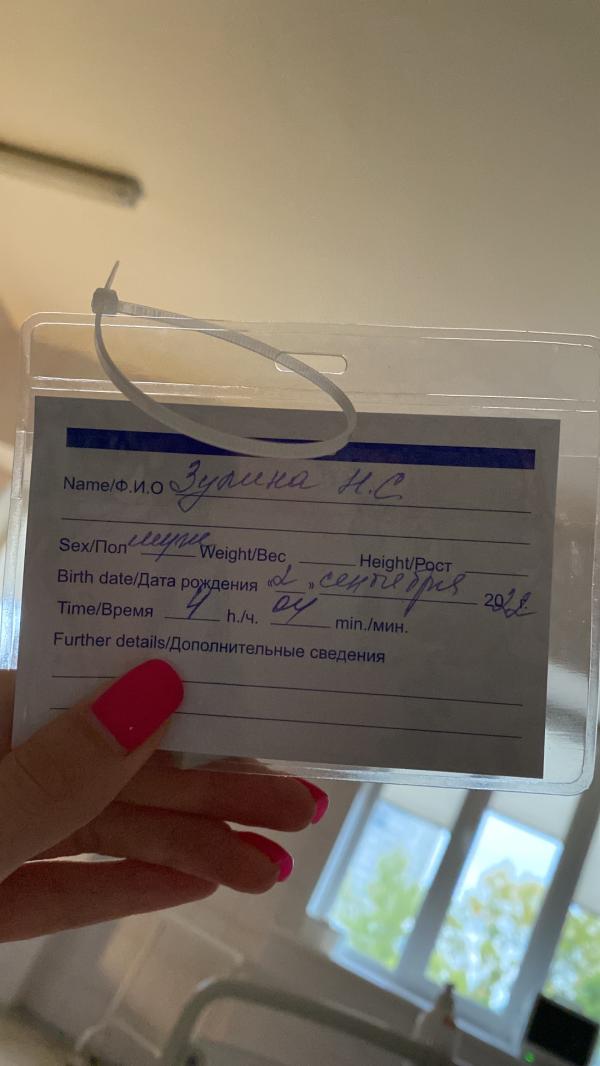 Name/Ф.И.О Зулина Н.С.
Sex/Пол муж Weight/Вес Height/Рост
Birth date/Дата рождения «2» сентября 2022 г.
Time/Время 4 h./ч. 04 min./мин.
Further details/Дополнительные сведения